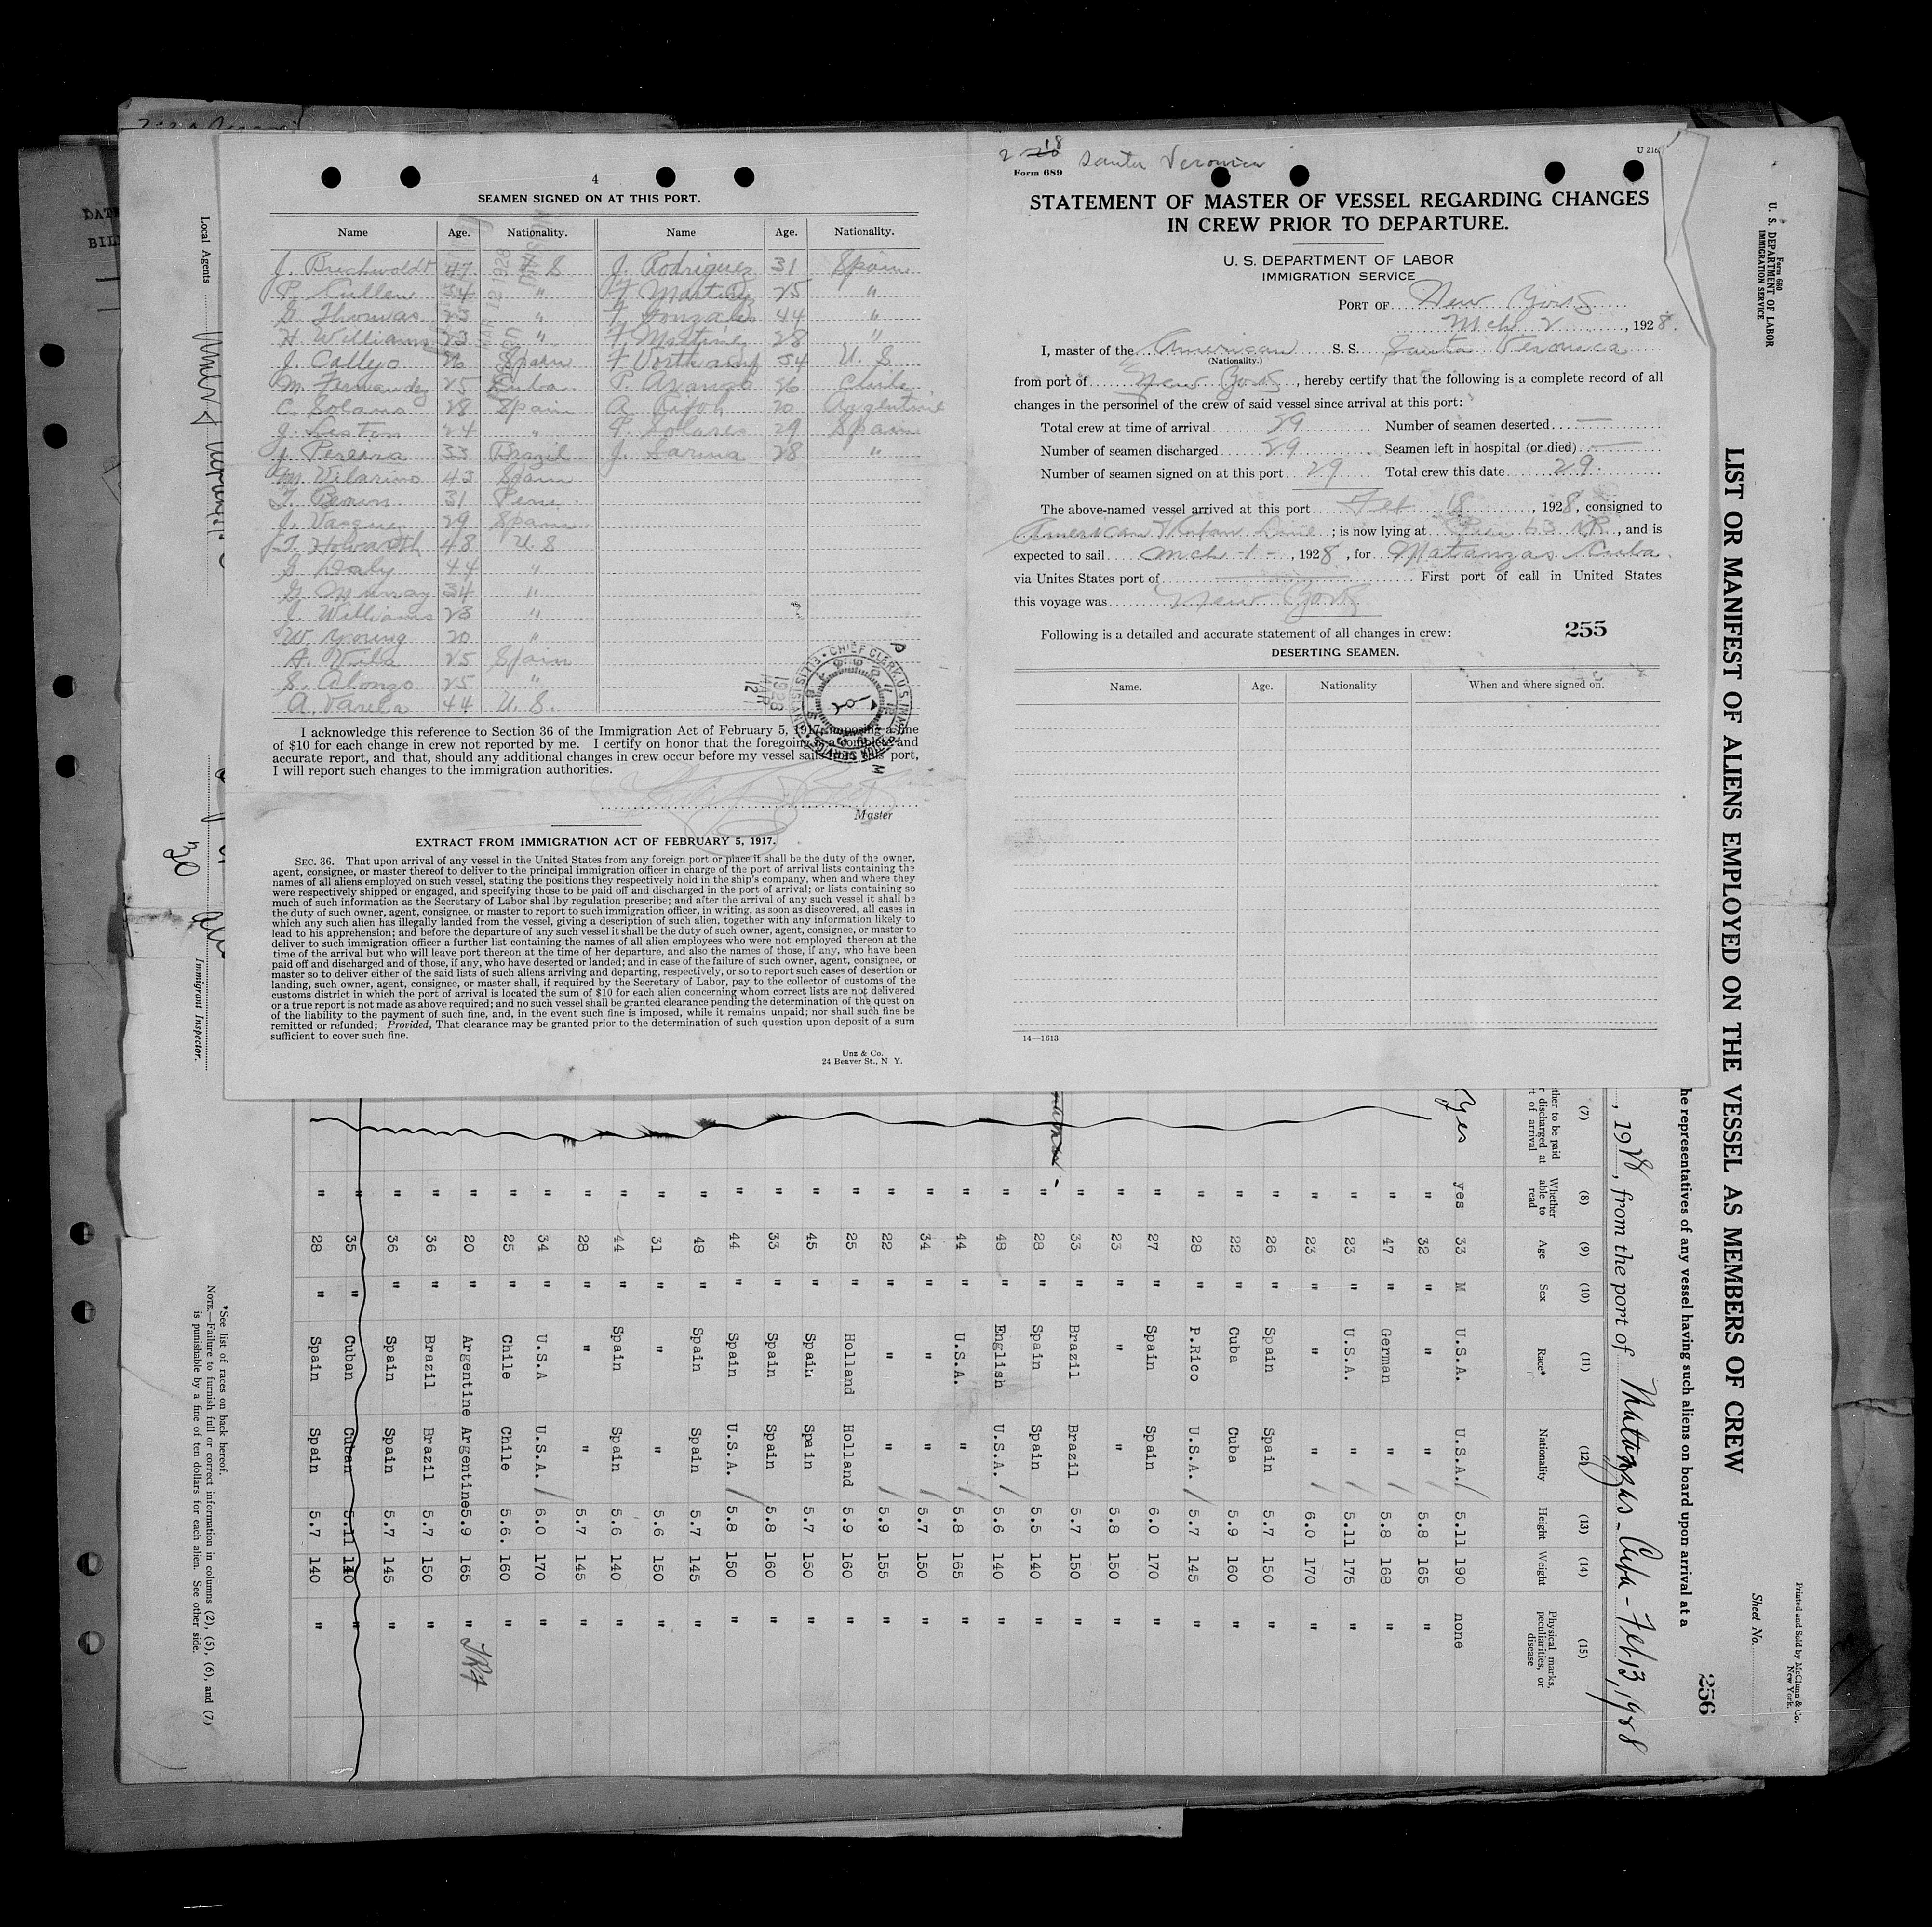 4
SEAMEN SIGNED ON AT THIS PORT.
Name Age. Nationality. Name Age. Nationality.
J. Brechwoldt 47 U S J. Rodriguez 31 Spain
P. Cullen 34 " F. Martinez 25 "
G. Thomas 23 " F. Gonzales 44 "
H. Williams 23 " F. Martine 28 "
J. Callejo 26 Spain F. 34 U. S
M. Fernandez 25 Cuba P. Arango 26 Chile
C. Solans 28 Spain A. 20 Argentine
J. Leston 24 " P. Solares 29 Spain
J. Pereira 33 Brazil J. Sarina 28 "
M. Vilarino 43 Spain
T. Brown 31 Peru
J. Vasquez 29 Spain
T. Howarth 48 U. S
G. Daly 44 "
G. Murray 34 "
J. Williams 23 "
W. Young 20 "
A. Vila 25 Spain
S. Abongo 25 "
A. Varela 44 U. S.
I acknowledge this reference to Section 36 of the Immigration Act of February 5, 1917, imposing a fine
of $10 for each change in crew not reported by me. I certify on honor that the foregoing is a complete and
accurate report, and that, should any additional changes in crew occur before my vessel sails this port,
I will report such changes to the immigration authorities.
Master
EXTRACT FROM IMMIGRATION ACT OF FEBRUARY 5, 1917.
SEC. 36. That upon arrival of any vessel in the United States from any foreign port or place it shall be the duty of the owner,
agent, consignee, or master thereof to deliver to the principal immigration officer in charge of the port of arrival lists containing the
names of all aliens employed on such vessel, stating the positions they respectively hold in the ship's company, when and where they
were respectively shipped or engaged, and specifying those to be paid off and discharged in the port of arrival; or lists containing so
much of such information as the Secretary of Labor shal lby regulation prescribe; and after the arrival of any such vessel it shall be
the duty of such owner, agent, consignee, or master to report to such immigration officer, in writing, as soon as discovered, all cases in
which any such alien has illegally landed from the vessel, giving a description of such alien, together with any information likely to
lead to his apprehension; and before the departure of any such vessel it shall be the duty of such owner, agent, consignee, or master to
deliver to such immigration officer a further list containing the names of all alien employees who were not employed thereon at the
time of the arrival but who will leave port thereon at the time of her departure, and also the names of those, if any, who have been
paid off and discharged and of those, if any, who have deserted or landed; and in case of the failure of such owner, agent, consignee, or
master so to deliver either of the said lists of such aliens arriving and departing, respectively, or so to report such cases of desertion or
landing, such owner, agent, consignee, or master shall, if required by the Secretary of Labor, pay to the collector of customs of the
customs district in which the port of arrival is located the sum of $10 for each alien concerning whom correct lists are not delivered
or a true report is not made as above required; and no such vessel shall be granted clearance pending the determination of the quest on
of the liability to the payment of such fine, and, in the event such fine is imposed, while it remains unpaid; nor shall such fine be
remitted or refunded; Provided, That clearance may be granted prior to the determination of such question upon deposit of a sum
sufficient to cover such fine.
Unz & Co.
24 Beaver St., N Y.
2 18 Santa Veronica
Form 689
U 216
STATEMENT OF MASTER OF VESSEL REGARDING CHANGES
IN CREW PRIOR TO DEPARTURE.
U. S. DEPARTMENT OF LABOR
IMMIGRATION SERVICE
PORT OF New York
Mch 2, 1928.
I, master of the American S. S. Santa Veronica
(Nationality.)
from port of New York, hereby certify that the following is a complete record of all
changes in the personnel of the crew of said vessel since arrival at this port:
Total crew at time of arrival 29 Number of seamen deserted —
Number of seamen discharged 29 Seamen left in hospital (or died) —
Number of seamen signed on at this port 29 Total crew this date 29.
The above-named vessel arrived at this port Feb 18, 1928, consigned to
American Line; is now lying at Pier 63 N.R., and is
expected to sail Mch -1-, 1928, for Matanzas Cuba.
via Unites States port of First port of call in United States
this voyage was New York
Following is a detailed and accurate statement of all changes in crew: 255
DESERTING SEAMEN.
Name. Age. Nationality When and where signed on.
14—1613
Form 680
U. S. DEPARTMENT OF LABOR
IMMIGRATION SERVICE
Printed and Sold by McClunn & Co.
New York.
Sheet No.
256
LIST OR MANIFEST OF ALIENS EMPLOYED ON THE VESSEL AS MEMBERS OF CREW
he representatives of any vessel having such aliens on board upon arrival at a
, 1928, from the port of Matanzas - Cuba - Feb 13, 1928
(7) (8) (9) (10) (11) (12) (13) (14) (15)
ther to be paid discharged at t of arrival Whether able to read Age Sex Race* Nationality Height Weight Physical marks, peculiarities, or disease
Yes yes 33 M U.S.A. U.S.A. 5.11 190 none
" 32 " " " 5.8 165 "
" 47 " German " 5.8 168 "
" 23 " U.S.A. " 5.11 175 "
" 23 " " " 6.0 170 "
" 26 " Spain Spain 5.7 150 "
" 22 " Cuba Cuba 5.9 160 "
" 28 " P.Rico U.S.A. 5.7 145 "
" 27 " Spain Spain 6.0 170 "
" 23 " " " 5.8 150 "
" 33 " Brazil Brazil 5.7 150 "
" 28 " Spain Spain 5.5 140 "
" 48 " English U.S.A. 5.6 140 "
" 44 " U.S.A. " 5.8 165 "
" 34 " " " 5.7 160 "
" 22 " " " 5.9 155 "
" 25 " Holland Holland 5.9 160 "
" 45 " Spain Spain 5.7 150 "
" 33 " Spain Spain 5.8 160 "
" 44 " Spain U.S.A. 5.8 150 "
" 48 " Spain Spain 5.7 145 "
" 31 " " " 5.6 150 "
" 44 " Spain Spain 5.6 140 "
" 28 " " " 5.7 145 "
" 34 " U.S.A U.S.A. 6.0 170 "
" 25 " Chile Chile 5.6. 160 "
" 20 " Argentine Argentine 5.9 165 "
" 36 " Brazil Brazil 5.7 150 "
" 36 " Spain Spain 5.7 145 "
" 35 " Cuban Cuban 5.11 140 "
" 28 " Spain Spain 5.7 140 "
*See list of races on back hereof.
NOTE.—Failure to furnish full or correct information in columns (2), (5), (6), and (7)
is punishable by a fine of ten dollars for each alien. See other side.
Local Agents
30
Immigrant Inspector.